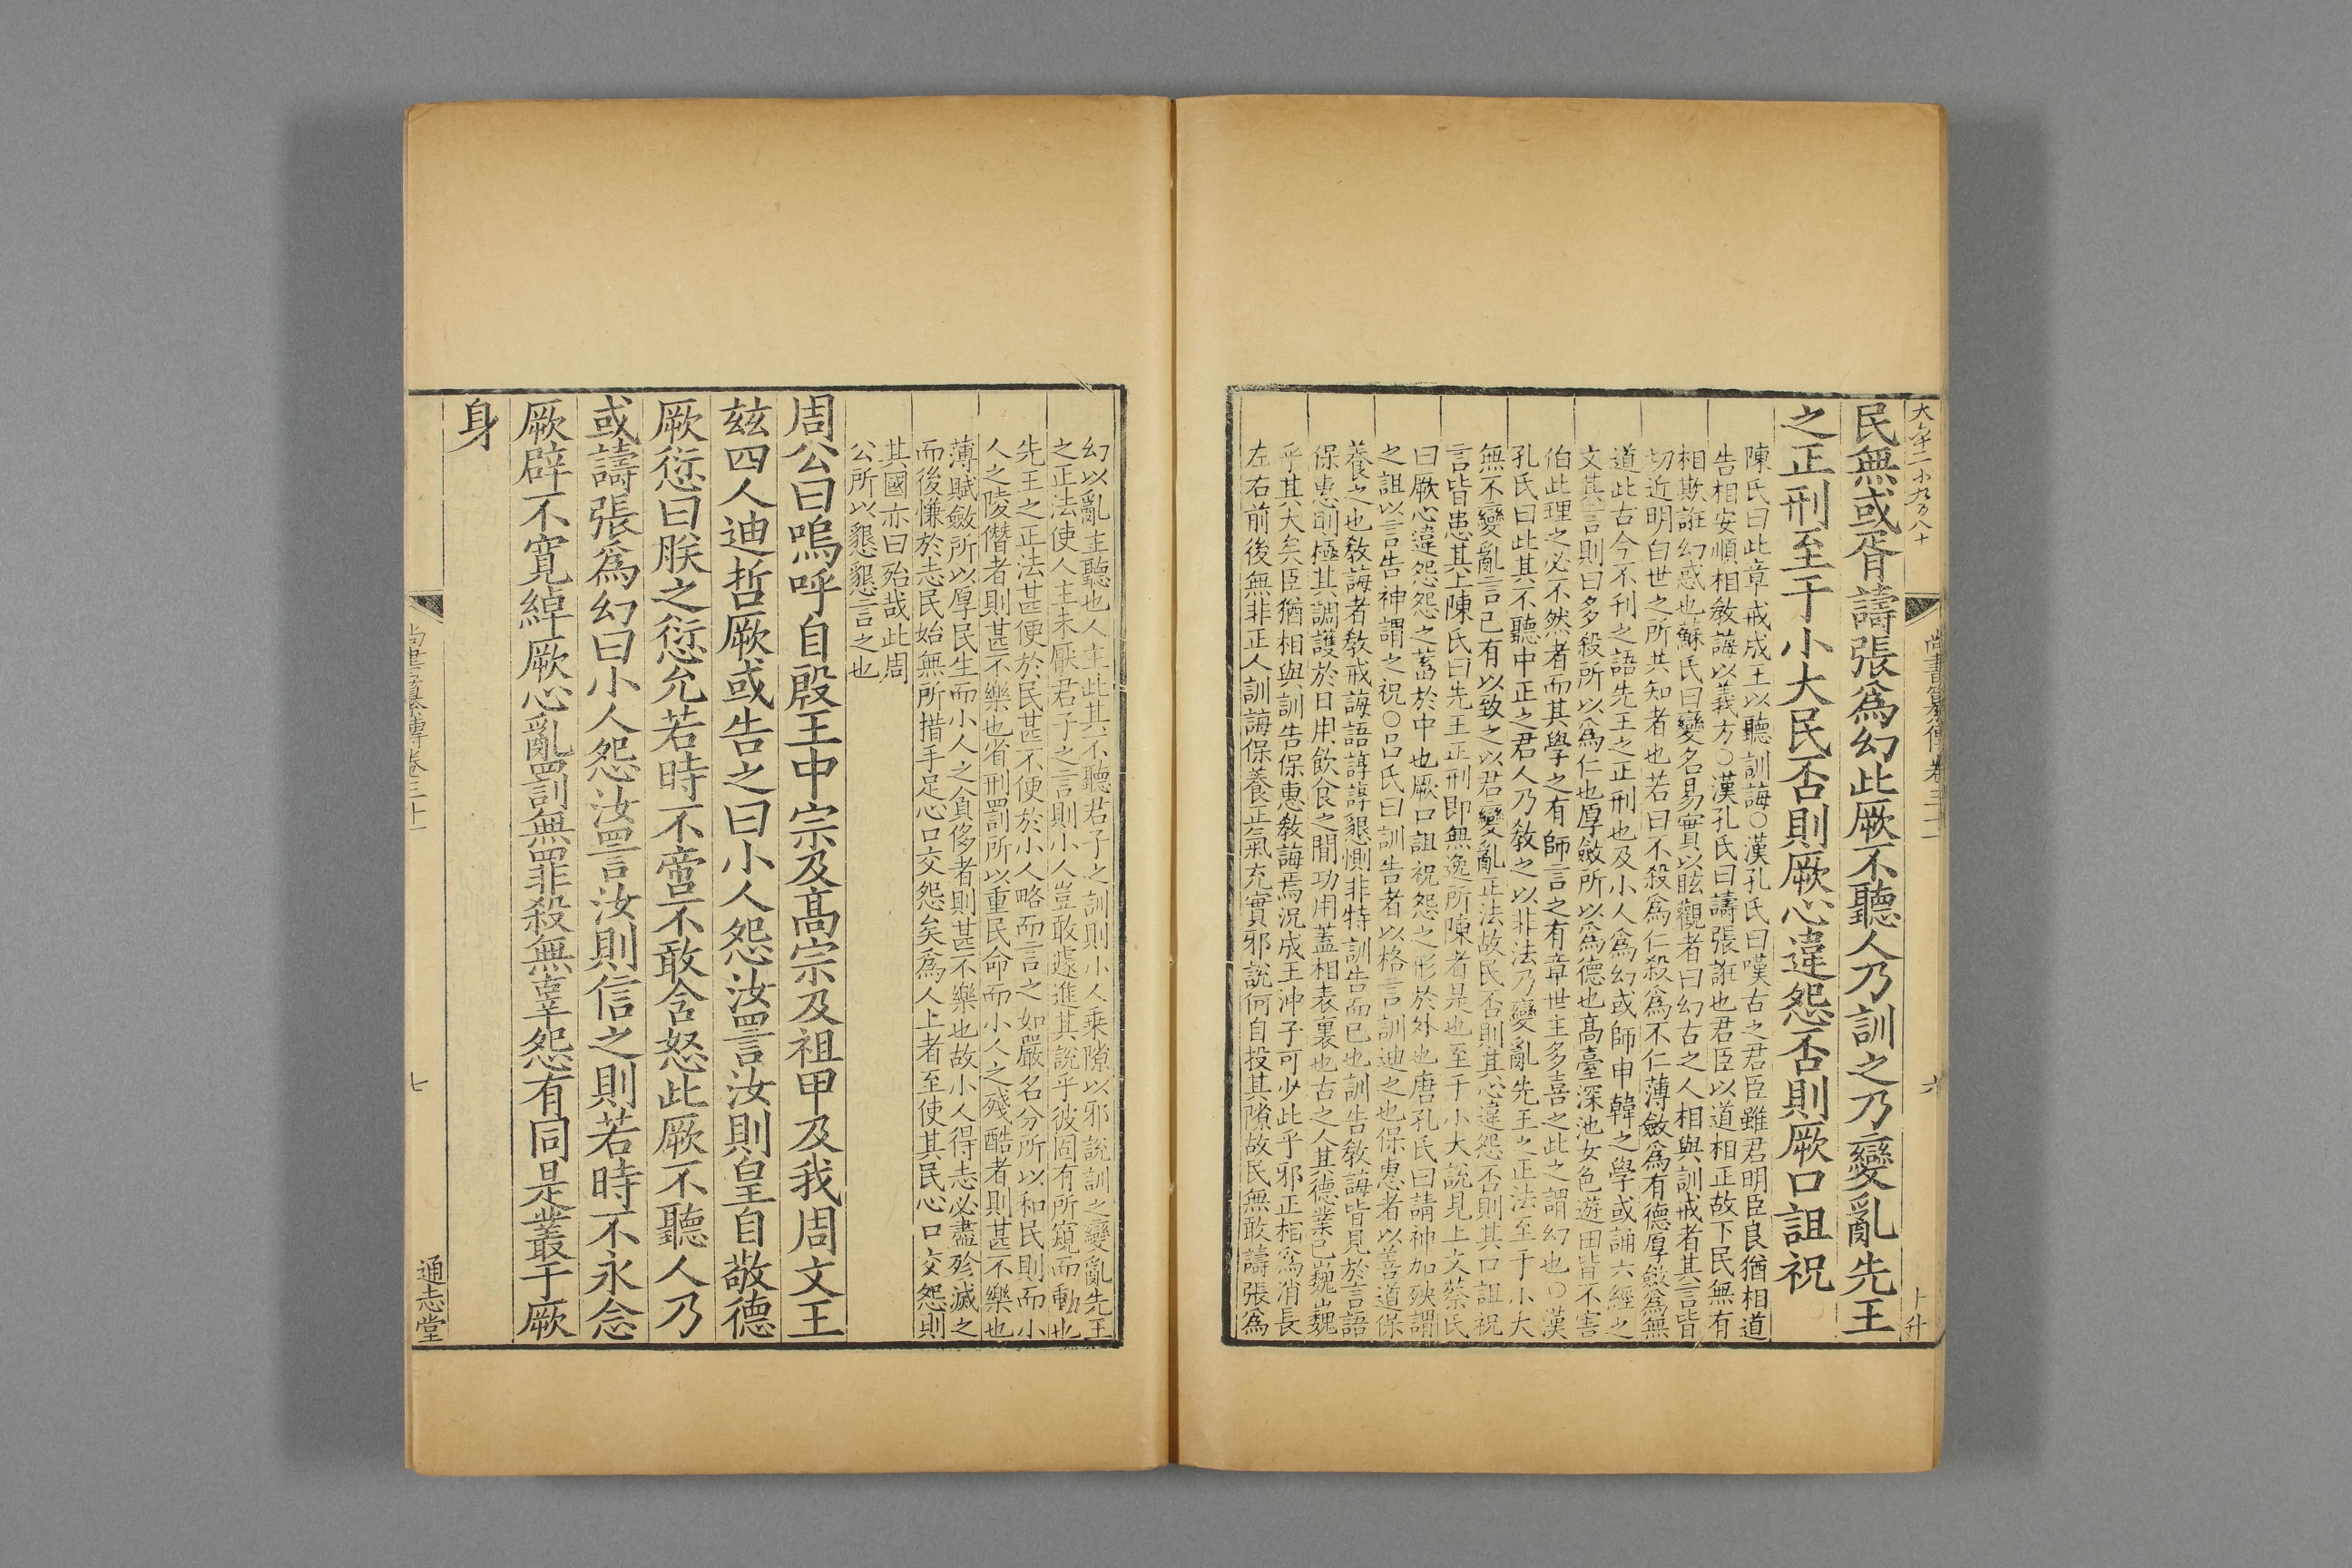 大六字二小九百八十
尚書纂傳卷三十一
六
卜升
民無或胥譸張爲幻此厥不聽人乃訓之乃變亂先王
之正刑至于小大民否則厥心違怨否則厥口詛祝
陳氏曰此章戒成王以聽訓誨○漢孔氏曰嘆古之君臣雖君明臣良猶相道
告相安順相敎誨以義方○漢孔氏曰譸張誑也君臣以道相正故下民無有
相欺誑幻惑也蘇氏曰變名易實以眩觀者曰幻古之人相與訓戒者其言皆
切近明白世之所共知者也若曰不殺爲仁殺爲不仁薄斂爲有德厚斂爲無
道此古今不刋之語先王之正刑也及小人爲幻或師申韓之學或誦六經之
文其言則曰多殺所以爲仁也厚斂所以爲德也高臺深池女色遊田皆不害
伯此理之必不然者而其學之有師言之有章世主多喜之此之謂幻也○漢
孔氏曰此其不聽中正之君人乃敎之以非法乃變亂先王之正法至于小大
無不變亂言已有以致之以君變亂正法故民否則其心違怨否則其口詛祝
言皆患其上陳氏曰先王正刑即無逸所陳者是也至于小大說見上文蔡氏
曰厥心違怨怨之蓄於中也厥口詛祝怨之形於外也唐孔氏曰請神加殃謂
之詛以言告神謂之祝○呂氏曰訓告者以格言訓迪之也保惠者以善道保
養之也敎誨者敎戒誨語諄諄懇惻非特訓告而已也訓告敎誨皆見於言語
保惠則極其調護於日用飲食之間功用蓋相表裏也古之人其德業已巍巍
乎其大矣臣猶相與訓告保惠敎誨焉況成王沖子可少此乎邪正相爲消長
左右前後無非正人訓誨保養正氣充實邪說何自投其隙故民無敢譸張爲
幻以亂主聽也人主此其不聽君子之訓則小人乘隙以邪說訓之變亂先王
之正法使人主未厭君子之言則小人豈敢遽進其說乎彼固有所窺而動也
先王之正法甚便於民甚不便於小人略而言之如嚴名分所以和民則而小
人之陵僭者則甚不樂也省刑罰所以重民命而小人之殘酷者則甚不樂也
薄賦斂所以厚民生而小人之貪侈者則甚不樂也故小人得志必盡殄滅之
而後慊於志民始無所措手足心口交怨矣爲人上者至使其民心口交怨則
其國亦曰殆哉此周
公所以懇懇言之也
周公曰嗚呼自殷王中宗及高宗及祖甲及我周文王
茲四人迪哲厥或告之曰小人怨汝詈汝則皇自敬德
厥愆曰朕之愆允若時不啻不敢含怒此厥不聽人乃
或譸張爲幻曰小人怨汝詈汝則信之則若時不永念
厥辟不寬綽厥心亂罰無罪殺無辜怨有同是叢于厥
身
尚書纂傳卷三十一
七
通志堂